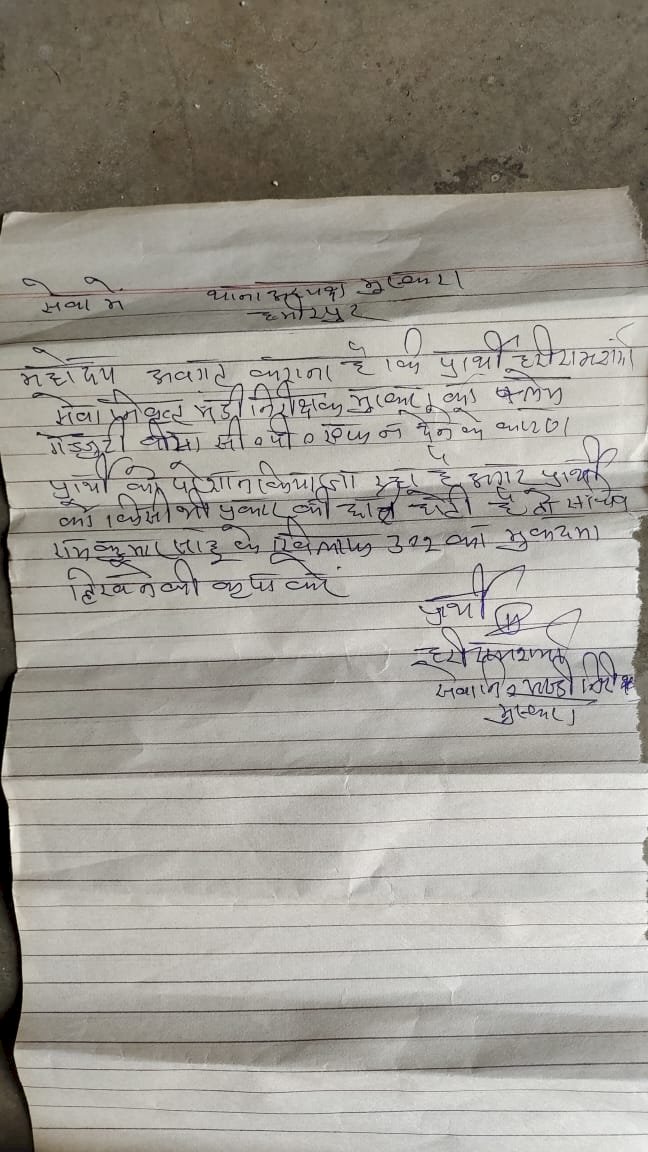 सेवा में थानाअध्यक्ष मुस्करा
हमीरपुर
महोदय अवगत कराना है कि प्रार्थी हरीराम शर्मा
सेवा निवृत्त मंडी निरीक्षक मुस्करा को क्लेम
ग्रेजुटी बीमा सी०पी०एफ न देने के कारण
प्रार्थी को परेशान किया जा रहा है अगर प्रार्थी
को किसी भी प्रकार की हानि होती है तो सचिव
रामकुमार साहू के खिलाफ 302 का मुकदमा
लिखने की कृपा करें
प्रार्थी
हरीराम शर्मा
सेवा नि० मण्डी निरीक्षक
मुस्करा